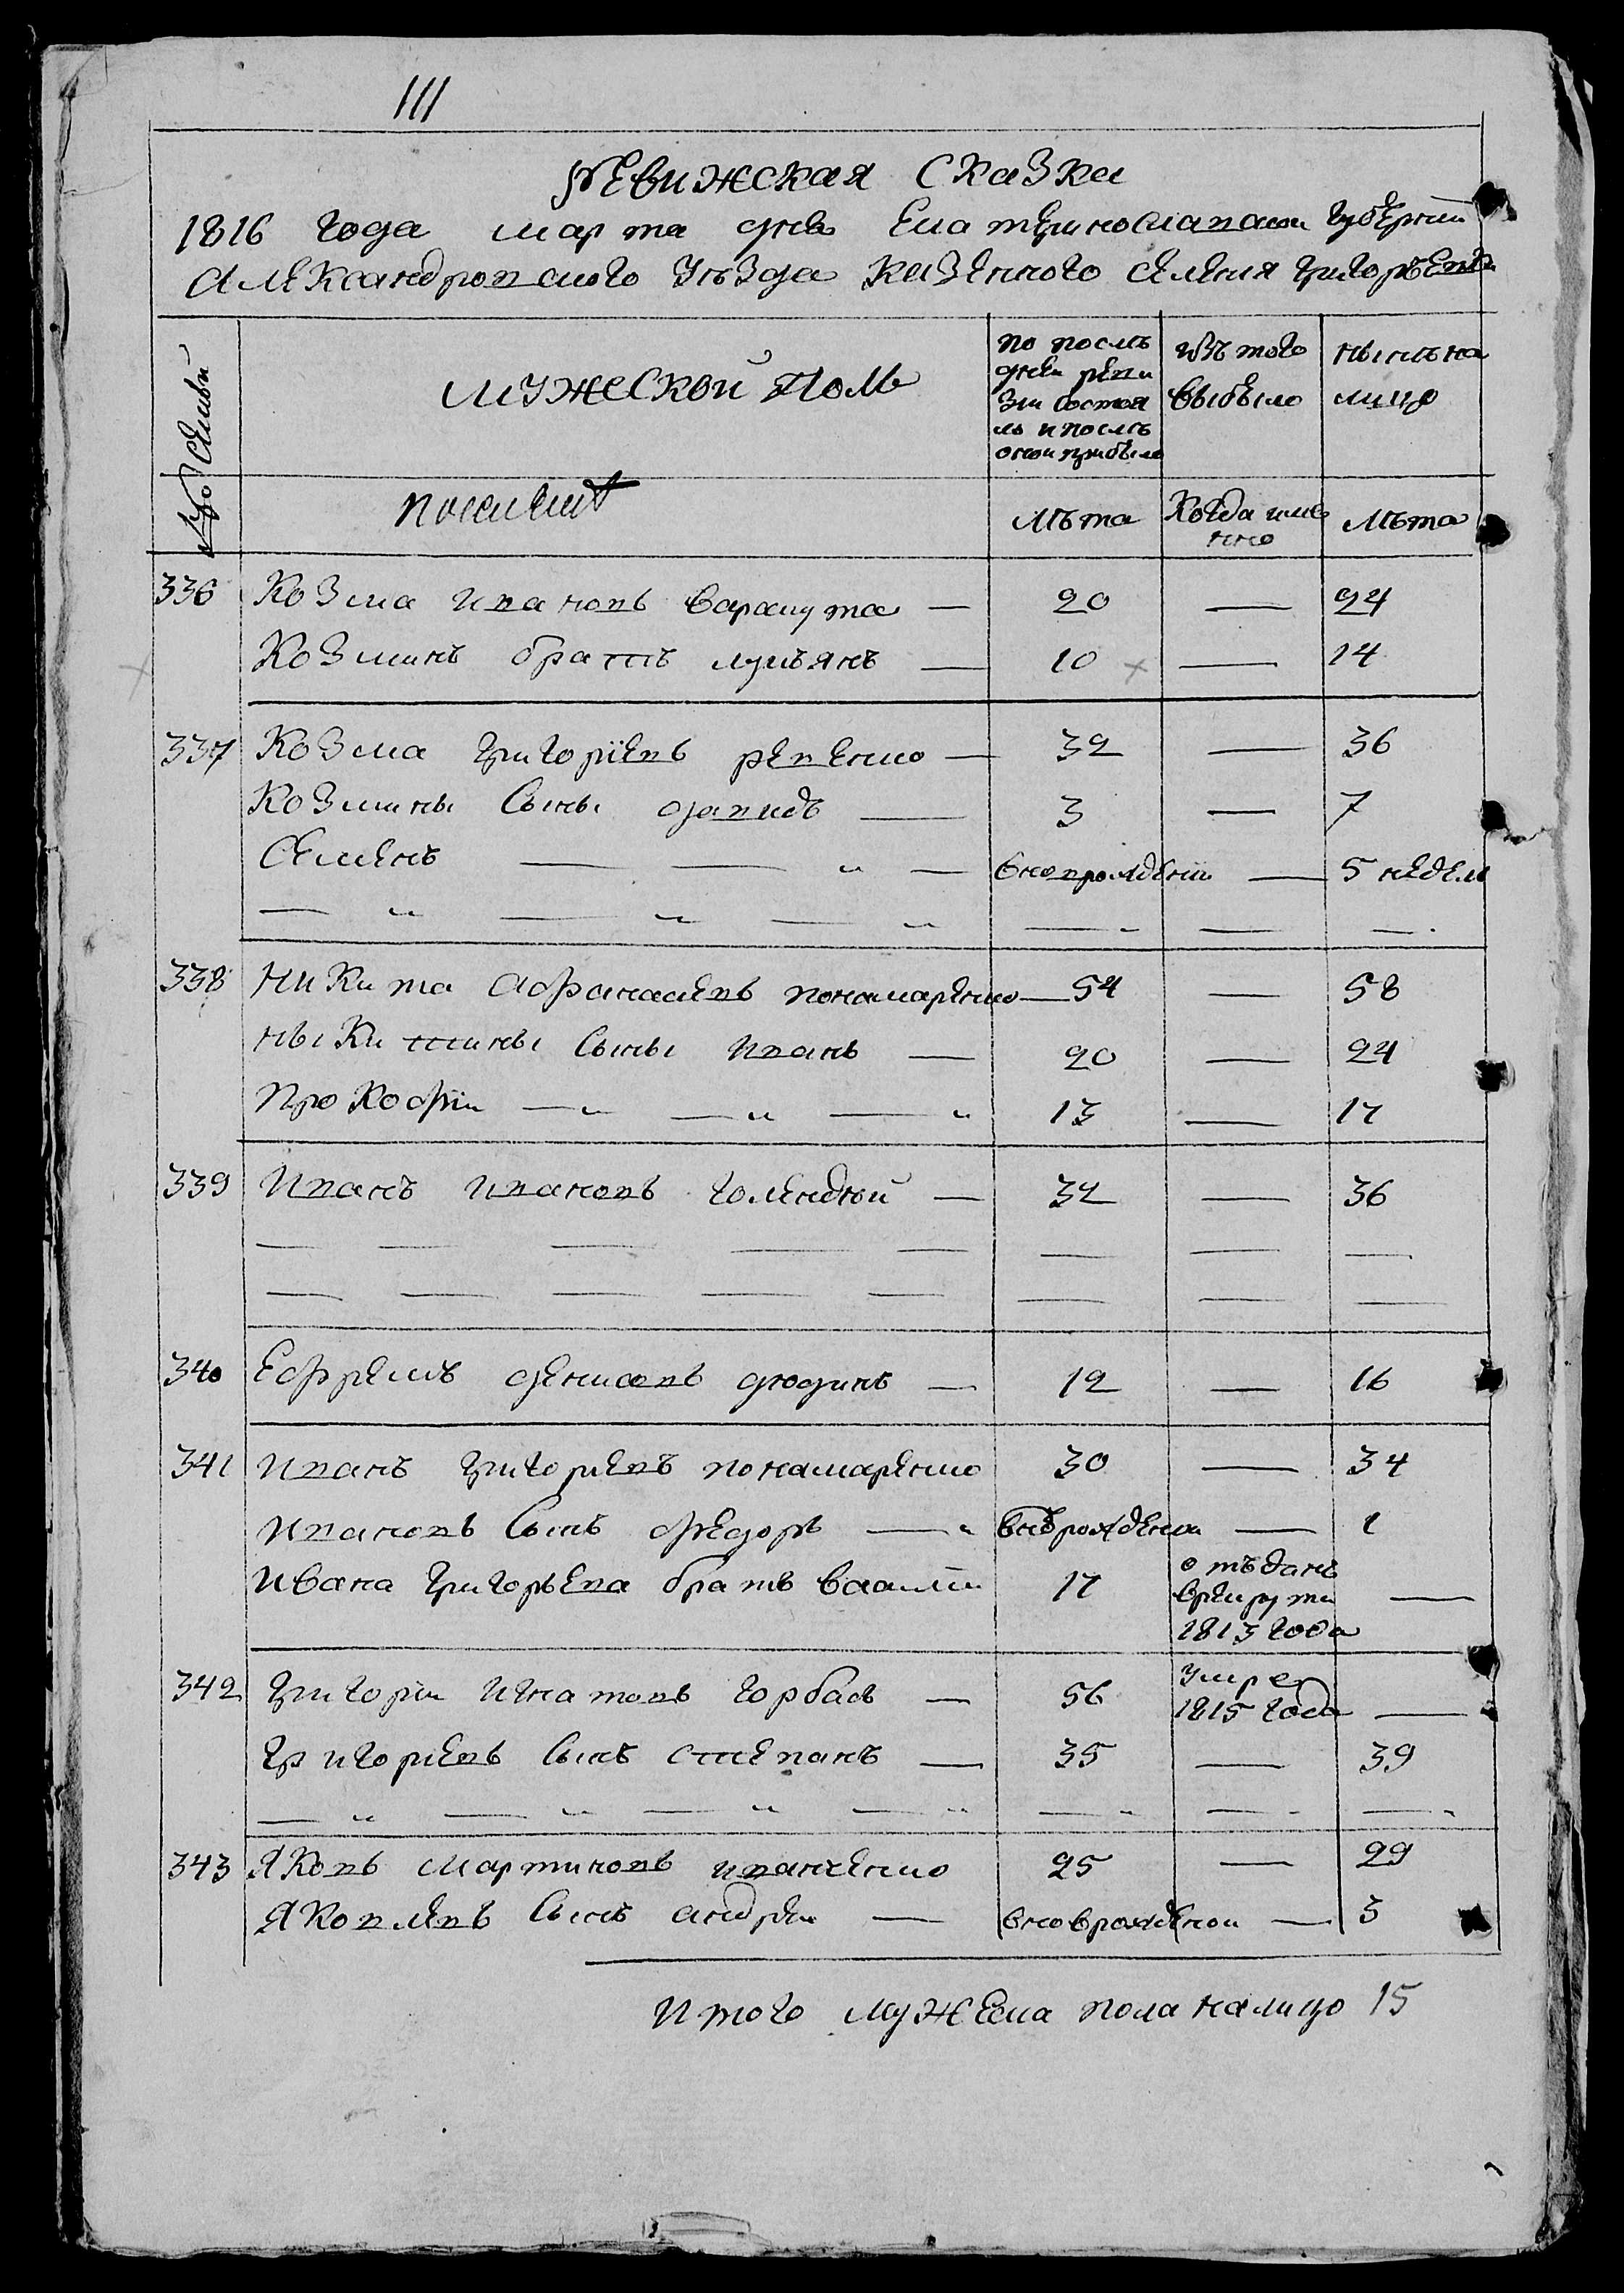 111
Ревижская Сказка
1816 года марта дня Екатеринославской губернии
Александровского уезда казенного селения Григорьевки
№ семьи
мужеской поль
по после
дней реви
зии состоя
ль и после
оной прибыло
изъ того
выбыло
ныне на
лицо
лета
Когда име
нно
лета
336 Козма Ивановъ Варакута — 20 — 24
Козминъ братъ лукъянъ — 10 — 14
337 Козма Григоріевъ ревенко — 32 — 36
Козмины сыны давидъ — 3 — 7
Семенъ — — " — вноврожденій — 5 недель
338 Никита Афанасіевъ понамаренко — 54 — 58
Ныкитины сыны Иванъ — 20 — 24
Прокофій — " — " — " 13 — 17
339 Иванъ Ивановъ голендной — 32 — 36
340 Ефремъ денисовъ дюдинъ — 12 — 16
341 Иванъ Григориевъ понамаренко 30 — 34
Ивановъ сынъ федоръ — " вновърожденои — 1
Ивана Григорьева братъ василій 17 отъданъ
врекруты —
1813 года
342 Григорій Игнатовъ горбась — 56 умре
1815 года —
Григориевъ сынъ степанъ — 35 — 39
343 Яковъ мартиновъ иванченко 25 — 29
Яковлевъ сынъ андрей — вновврожденои — 3
Итого мужеска пола налицо 15